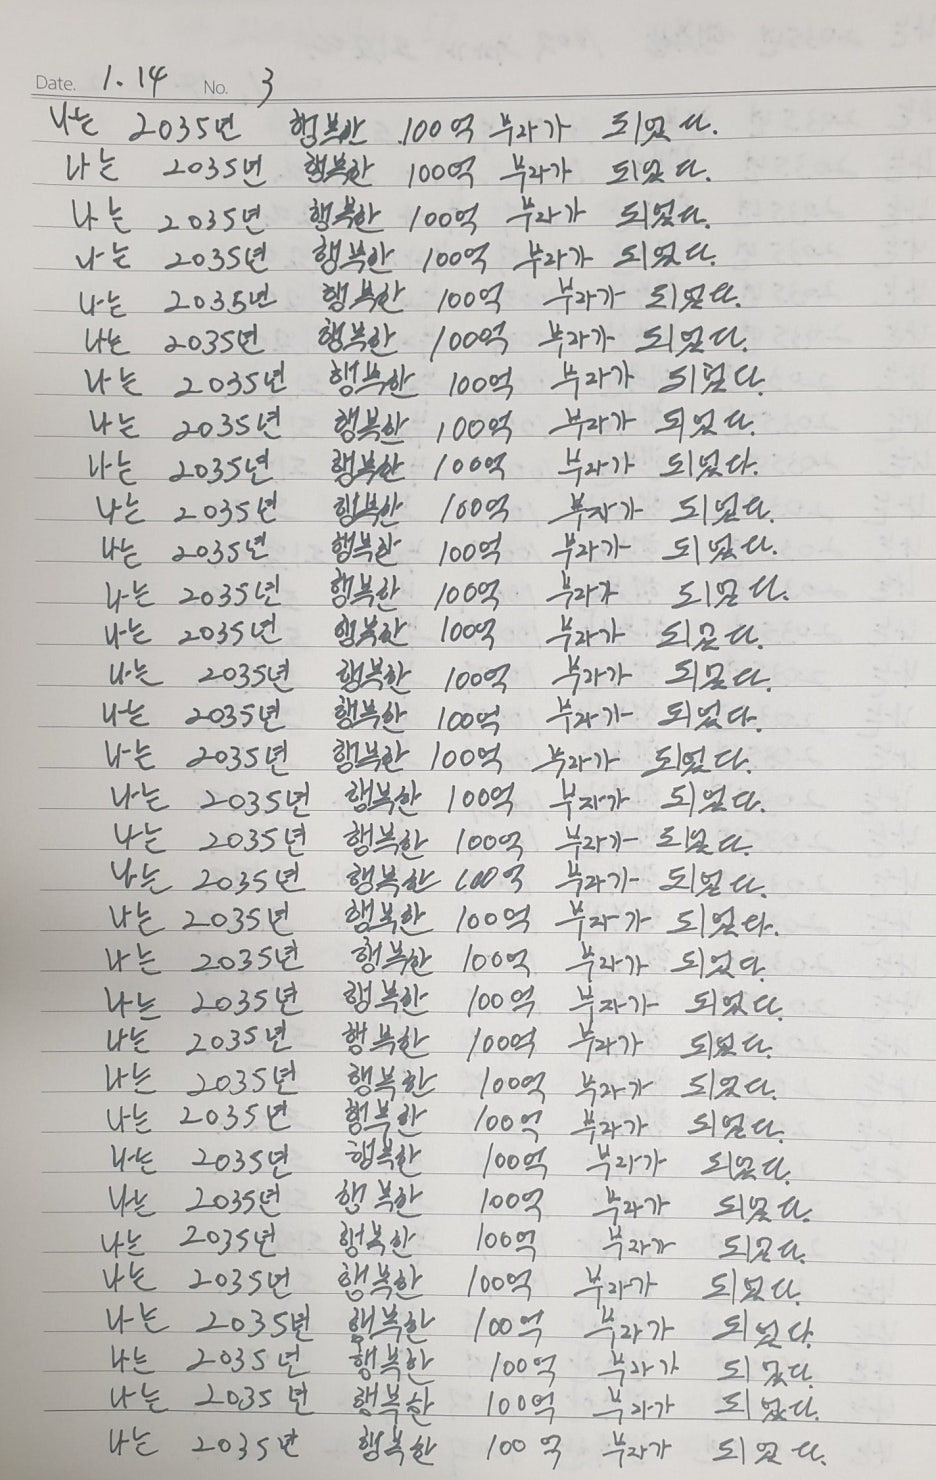 Date. 1.14 No. 3
나는 2035년 행복한 100억 부자가 되었다.
나는 2035년 행복한 100억 부자가 되었다.
나는 2035년 행복한 100억 부자가 되었다.
나는 2035년 행복한 100억 부자가 되었다.
나는 2035년 행복한 100억 부자가 되었다.
나는 2035년 행복한 100억 부자가 되었다.
나는 2035년 행복한 100억 부자가 되었다.
나는 2035년 행복한 100억 부자가 되었다.
나는 2035년 행복한 100억 부자가 되었다.
나는 2035년 행복한 100억 부자가 되었다.
나는 2035년 행복한 100억 부자가 되었다.
나는 2035년 행복한 100억 부자가 되었다.
나는 2035년 행복한 100억 부자가 되었다.
나는 2035년 행복한 100억 부자가 되었다.
나는 2035년 행복한 100억 부자가 되었다.
나는 2035년 행복한 100억 부자가 되었다.
나는 2035년 행복한 100억 부자가 되었다.
나는 2035년 행복한 100억 부자가 되었다.
나는 2035년 행복한 100억 부자가 되었다.
나는 2035년 행복한 100억 부자가 되었다.
나는 2035년 행복한 100억 부자가 되었다.
나는 2035년 행복한 100억 부자가 되었다.
나는 2035년 행복한 100억 부자가 되었다.
나는 2035년 행복한 100억 부자가 되었다.
나는 2035년 행복한 100억 부자가 되었다.
나는 2035년 행복한 100억 부자가 되었다.
나는 2035년 행복한 100억 부자가 되었다.
나는 2035년 행복한 100억 부자가 되었다.
나는 2035년 행복한 100억 부자가 되었다.
나는 2035년 행복한 100억 부자가 되었다.
나는 2035년 행복한 100억 부자가 되었다.
나는 2035년 행복한 100억 부자가 되었다.
나는 2035년 행복한 100억 부자가 되었다.